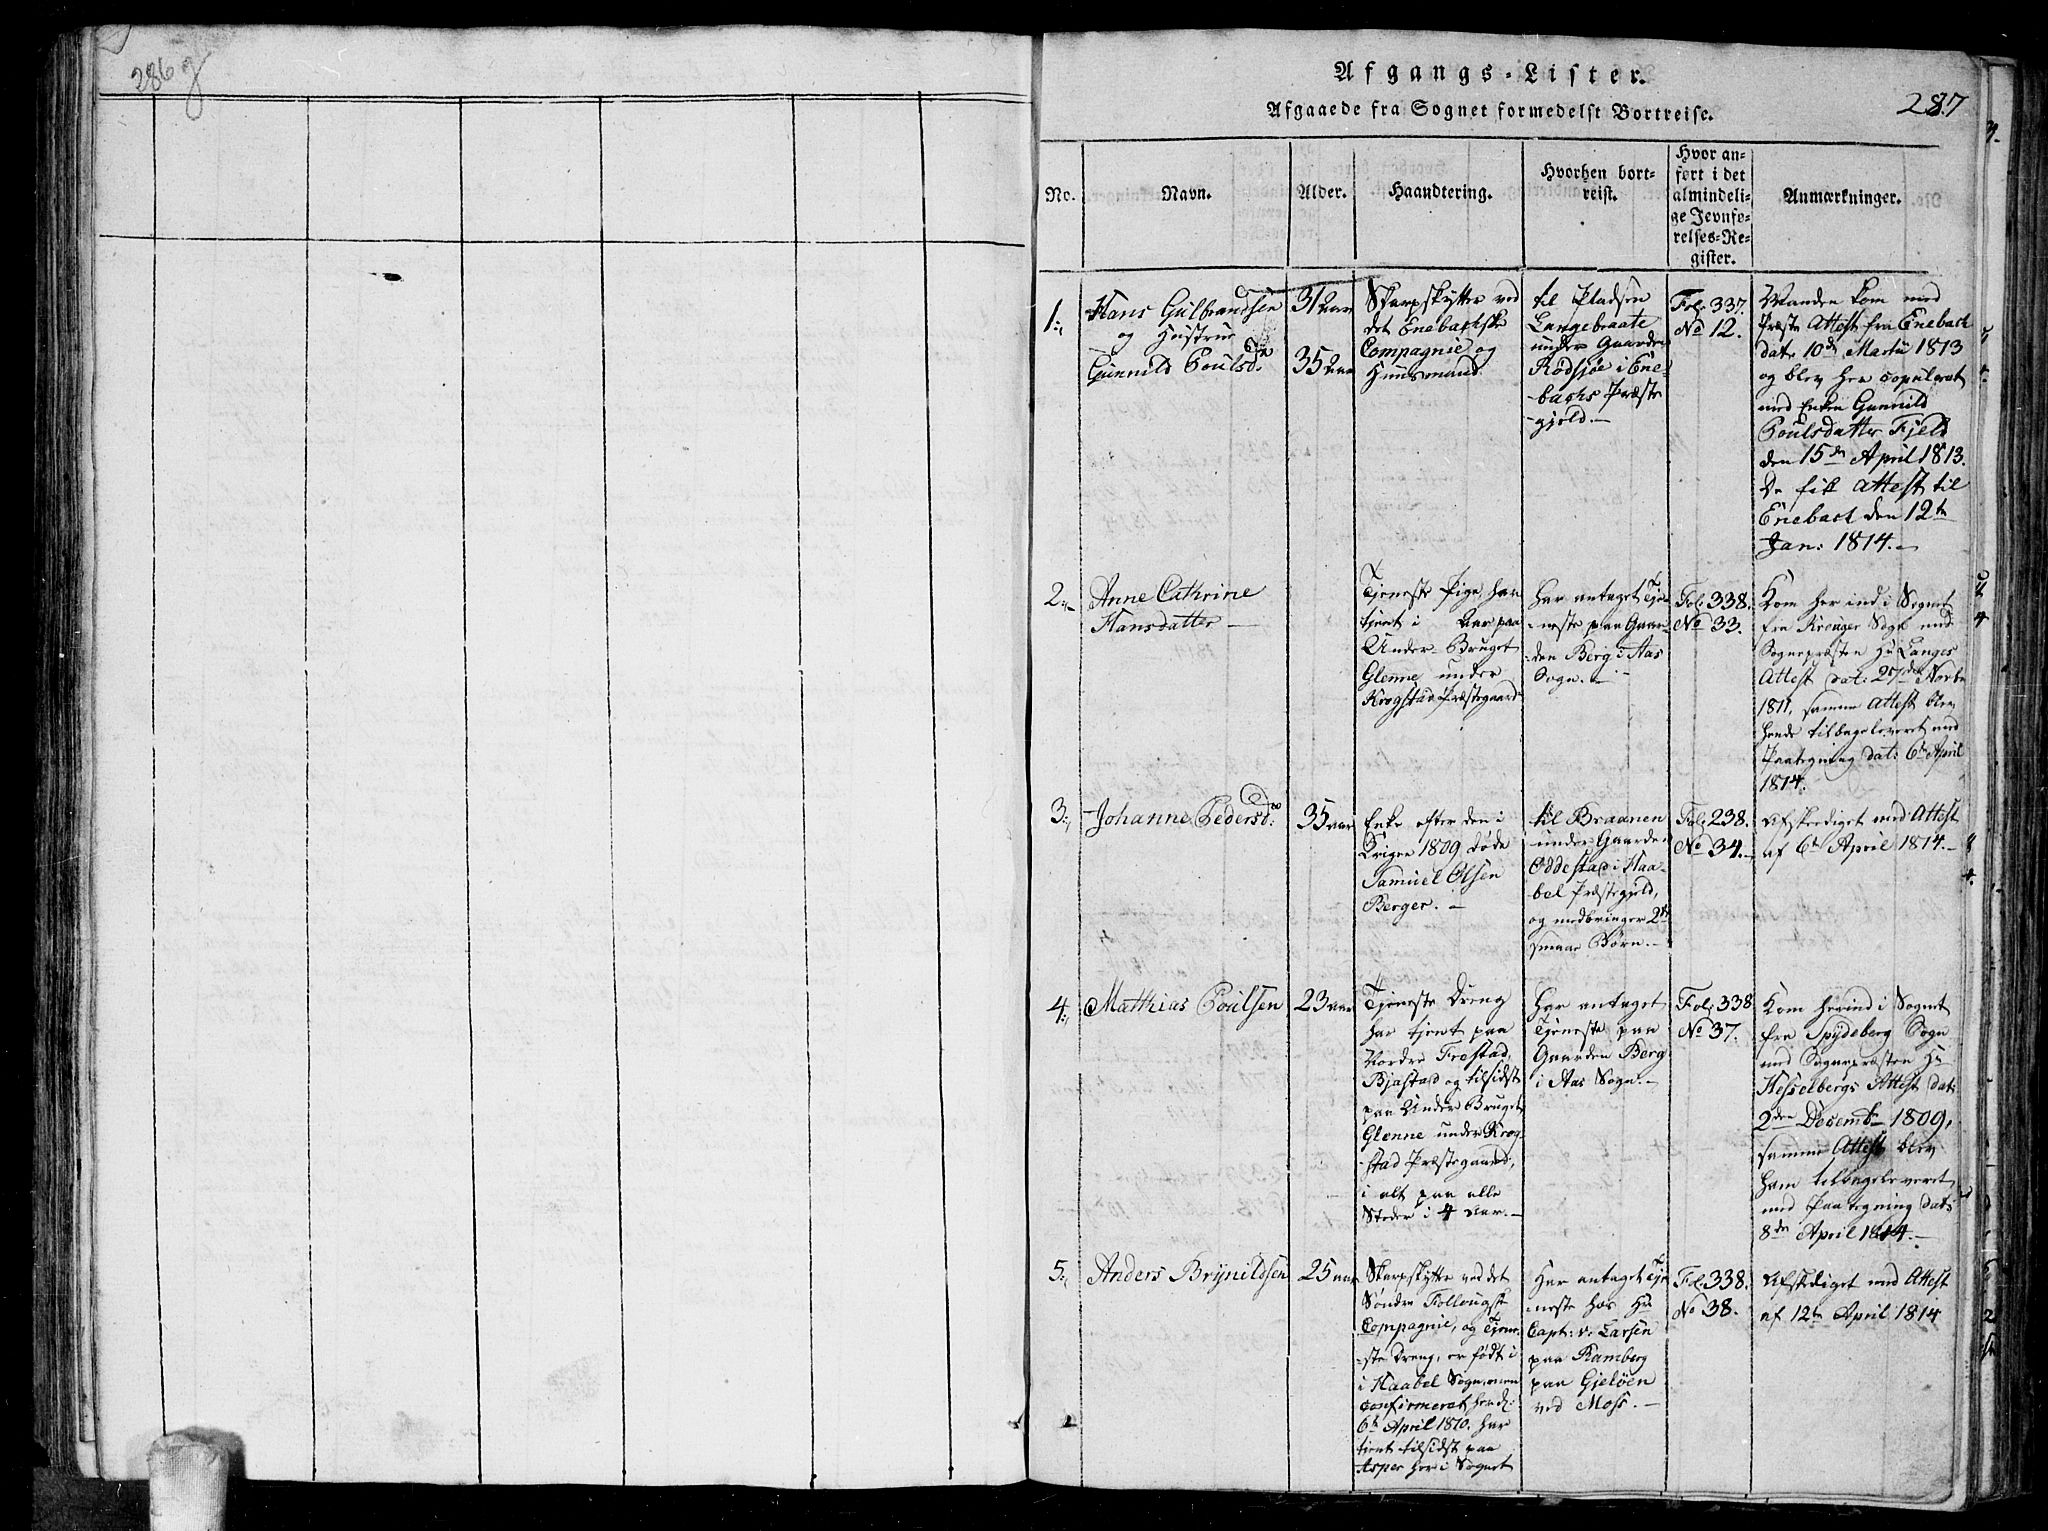 286
Afgangs-Lister.
Afgaaede fra Sognet formedelst Bortreise.
287
No.
Navn.
Alder.
Haandtering.
Hvorhen bort-
reist.
Hvor an-
ført i det
almindeli-
ge Jevnfø-
relses-Re-
gister.
Anmærkninger.
1.
Hans Gulbrandsen
og Hustrue
Gunnild Poulsd.
31 aar
35 aar
Skarpskytter ved
det Enebachske
Compagnie og
Huusmand.
til Pladsen
Langebraate
under Gaarden
Rødsjøe i Ene-
bachs Præste
gjeld.
Fol: 337.
No 12.
Manden kom med
Præste Attest fra Enebach
dat. 10de Martii 1813
og blev her copuleret
med Enken Gunnild
Poulsdatter Fjeld
den 15de April 1813.
De fik Attest til
Enebach den 12te
Jan: 1814.
2.
Anne Cathrine
Hansdatter
Tjeneste Pige, har
tjent i Aar paa
Under-Bruget
Glenne under
Krogstad Præstegaard
har antaget Tje-
neste paa Gaar-
den Berg i Aas
Sogn.
Fol: 338.
No 33.
Kom her ind i Sognet
fra Sogn med
Sognepræsten Hr Langes
Attest dat: 27de Novbr
1811, samme Attest blev
hende tilbageleveret med
Paategning dat: 6te April
1814.
3.
Johanne Pedersd:
35 aar
Enke efter den i
Krigen 1809 døde
Samuel Olsen
Berger.
til Braanen
under Gaarden
Oddestad i Haa-
bel Præstegjeld,
og medbringer 2de
smaae Børn.
Fol: 238.
No 34.
Afskediget med Attest
af 6te April 1814.
4.
Matthias Poulsen
23 aar
Tjeneste Dreng
har tjent paa
Nordre Frestad,
Bjastad og tilsidst
paa Under Bruget
Glenne under Krog-
stad Præstegaard,
i alt paa alle
Steder i 4 Aar.
Har antaget
Tjeneste paa
Gaarden Berg
i Aas Sogn.
Fol: 338
No 37.
Kom herind i Sognet
fra Spydeberg Sogn
med Sognepræsten Hr
Hesselbergs Attest dat:
2den Decemb. 1809,
samme Attest blev
ham tilbageleveret,
med Paategning dat:
8de April 1814.
5.
Anders Brynildsen
25 aar
Skarpskytte ved det
Søndre Follougske
Compagnie, og Tjene-
ste Dreng, er født i
i Haabel Sogn, men
confirmeret her d.
6te April 1810. har
tjent tilsidst paa
Asper her i Sognet
Har antaget Tje-
neste hos Hr
Capt: v. Larsen
paa Ramberg
paa Gjeløen
ved Moss.
Fol: 338.
No 38.
Afskediget med Attest
af 12te April 1814